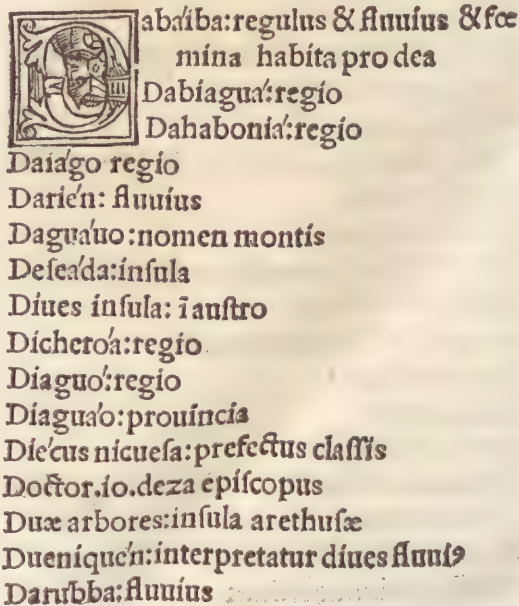 Dabáiba:regulus & fluuius & fœ
mina habita pro dea
Dabíaguá:regio
Dahaboníá:regio
Daiágo regio
Darién: fluuius
Daguáuo:nomen montis
Deſeáda:inſula
Díues inſula: ī auſtro
Dícheróa:regio
Díaguó:regio
Díaguáo:prouíncia
Diécus nícueſa:prefectus claſſis
Doctor.io.deza epíſcopus
Duæ arbores:inſula arethuſæ
Dueníquén:interpretatur díues fluuíꝰ
Darubba:fluuíus